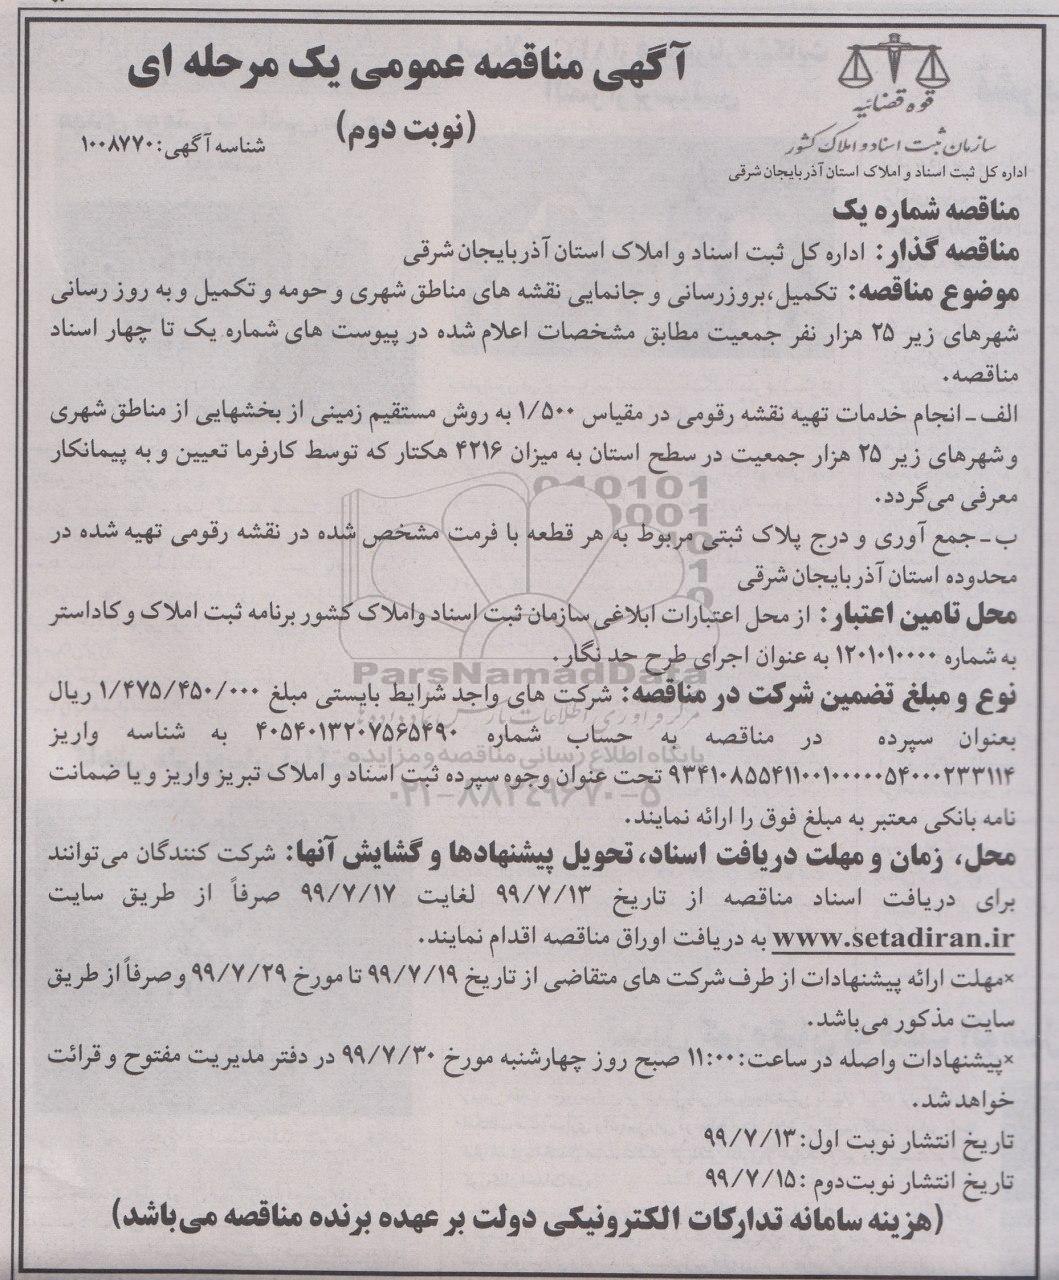 آگهی مناقصه عمومی یک مرحله ای
(نوبت دوم)
شناسه آگهی: ۱۰۰۸۷۷۰
قوه قضائیه
سازمان ثبت اسناد و املاک کشور
اداره کل ثبت اسناد و املاک استان آذربایجان شرقی
مناقصه شماره یک
مناقصه گذار: اداره کل ثبت اسناد و املاک استان آذربایجان شرقی
موضوع مناقصه: تکمیل،بروزرسانی و جانمایی نقشه های مناطق شهری و حومه و تکمیل و به روز رسانی
شهرهای زیر ۲۵ هزار نفر جمعیت مطابق مشخصات اعلام شده در پیوست های شماره یک تا چهار اسناد
مناقصه.
الف ـ انجام خدمات تهیه نقشه رقومی در مقیاس ۱/۵۰۰ به روش مستقیم زمینی از بخشهایی از مناطق شهری
و شهرهای زیر ۲۵ هزار جمعیت در سطح استان به میزان ۴۲۱۶ هکتار که توسط کارفرما تعیین و به پیمانکار
معرفی می‌گردد.
ب ـ جمع آوری و درج پلاک ثبتی مربوط به هر قطعه با فرمت مشخص شده در نقشه رقومی تهیه شده در
محدوده استان آذربایجان شرقی
محل تامین اعتبار: از محل اعتبارات ابلاغی سازمان ثبت اسناد واملاک کشور برنامه ثبت املاک و کاداستر
به شماره ۱۲۰۱۰۱۰۰۰۰ به عنوان اجرای طرح حد نگار.
ParsNamadData
نوع و مبلغ تضمین شرکت در مناقصه: شرکت های واجد شرایط بایستی مبلغ ۱/۴۷۵/۴۵۰/۰۰۰ ریال
بعنوان سپرده در مناقصه به حساب شماره ۴۰۵۴۰۱۳۲۰۷۵۶۵۴۹۰ به شناسه واریز
پایگاه اطلاع رسانی مناقصه و مزایده
۹۳۴۱۰۸۵۵۴۱۱۰۰۱۰۰۰۰۰۵۴۰۰۰۲۳۳۱۱۴ تحت عنوان وجوه سپرده ثبت اسناد و املاک تبریز واریز و یا ضمانت
۰۲۱-۸۸۳۴۹۶۷۰-۵
نامه بانکی معتبر به مبلغ فوق را ارائه نمایند.
محل، زمان و مهلت دریافت اسناد، تحویل پیشنهادها و گشایش آنها: شرکت کنندگان می‌توانند
برای دریافت اسناد مناقصه از تاریخ ۹۹/۷/۱۳ لغایت ۹۹/۷/۱۷ صرفاً از طریق سایت
www.setadiran.ir به دریافت اوراق مناقصه اقدام نمایند.
×مهلت ارائه پیشنهادات از طرف شرکت های متقاضی از تاریخ ۹۹/۷/۱۹ تا مورخ ۹۹/۷/۲۹ و صرفاً از طریق
سایت مذکور می‌باشد.
×پیشنهادات واصله در ساعت: ۱۱:۰۰ صبح روز چهارشنبه مورخ ۹۹/۷/۳۰ در دفتر مدیریت مفتوح و قرائت
خواهد شد.
تاریخ انتشار نوبت اول: ۹۹/۷/۱۳
تاریخ انتشار نوبت‌دوم : ۹۹/۷/۱۵
(هزینه سامانه تدارکات الکترونیکی دولت بر عهده برنده مناقصه می‌باشد)